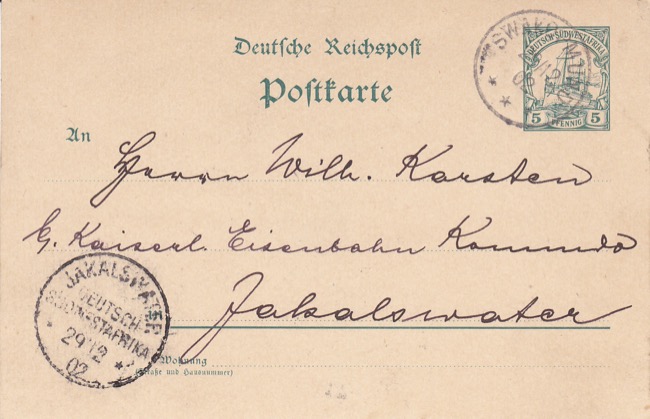 Deutsche Reichspost
Postkarte
SWAKOPMUND
DEUTSCH-SÜDWESTAFRIKA
5 PFENNIG 5
An
Herrn Wilh. Karsten
Kaiserl. Eisenbahn Kommando
Jakalswater
JAKALSWATER
DEUTSCH-
SÜDWESTAFRIKA
29 12
02
Wohnung
(Straße und Hausnummer)